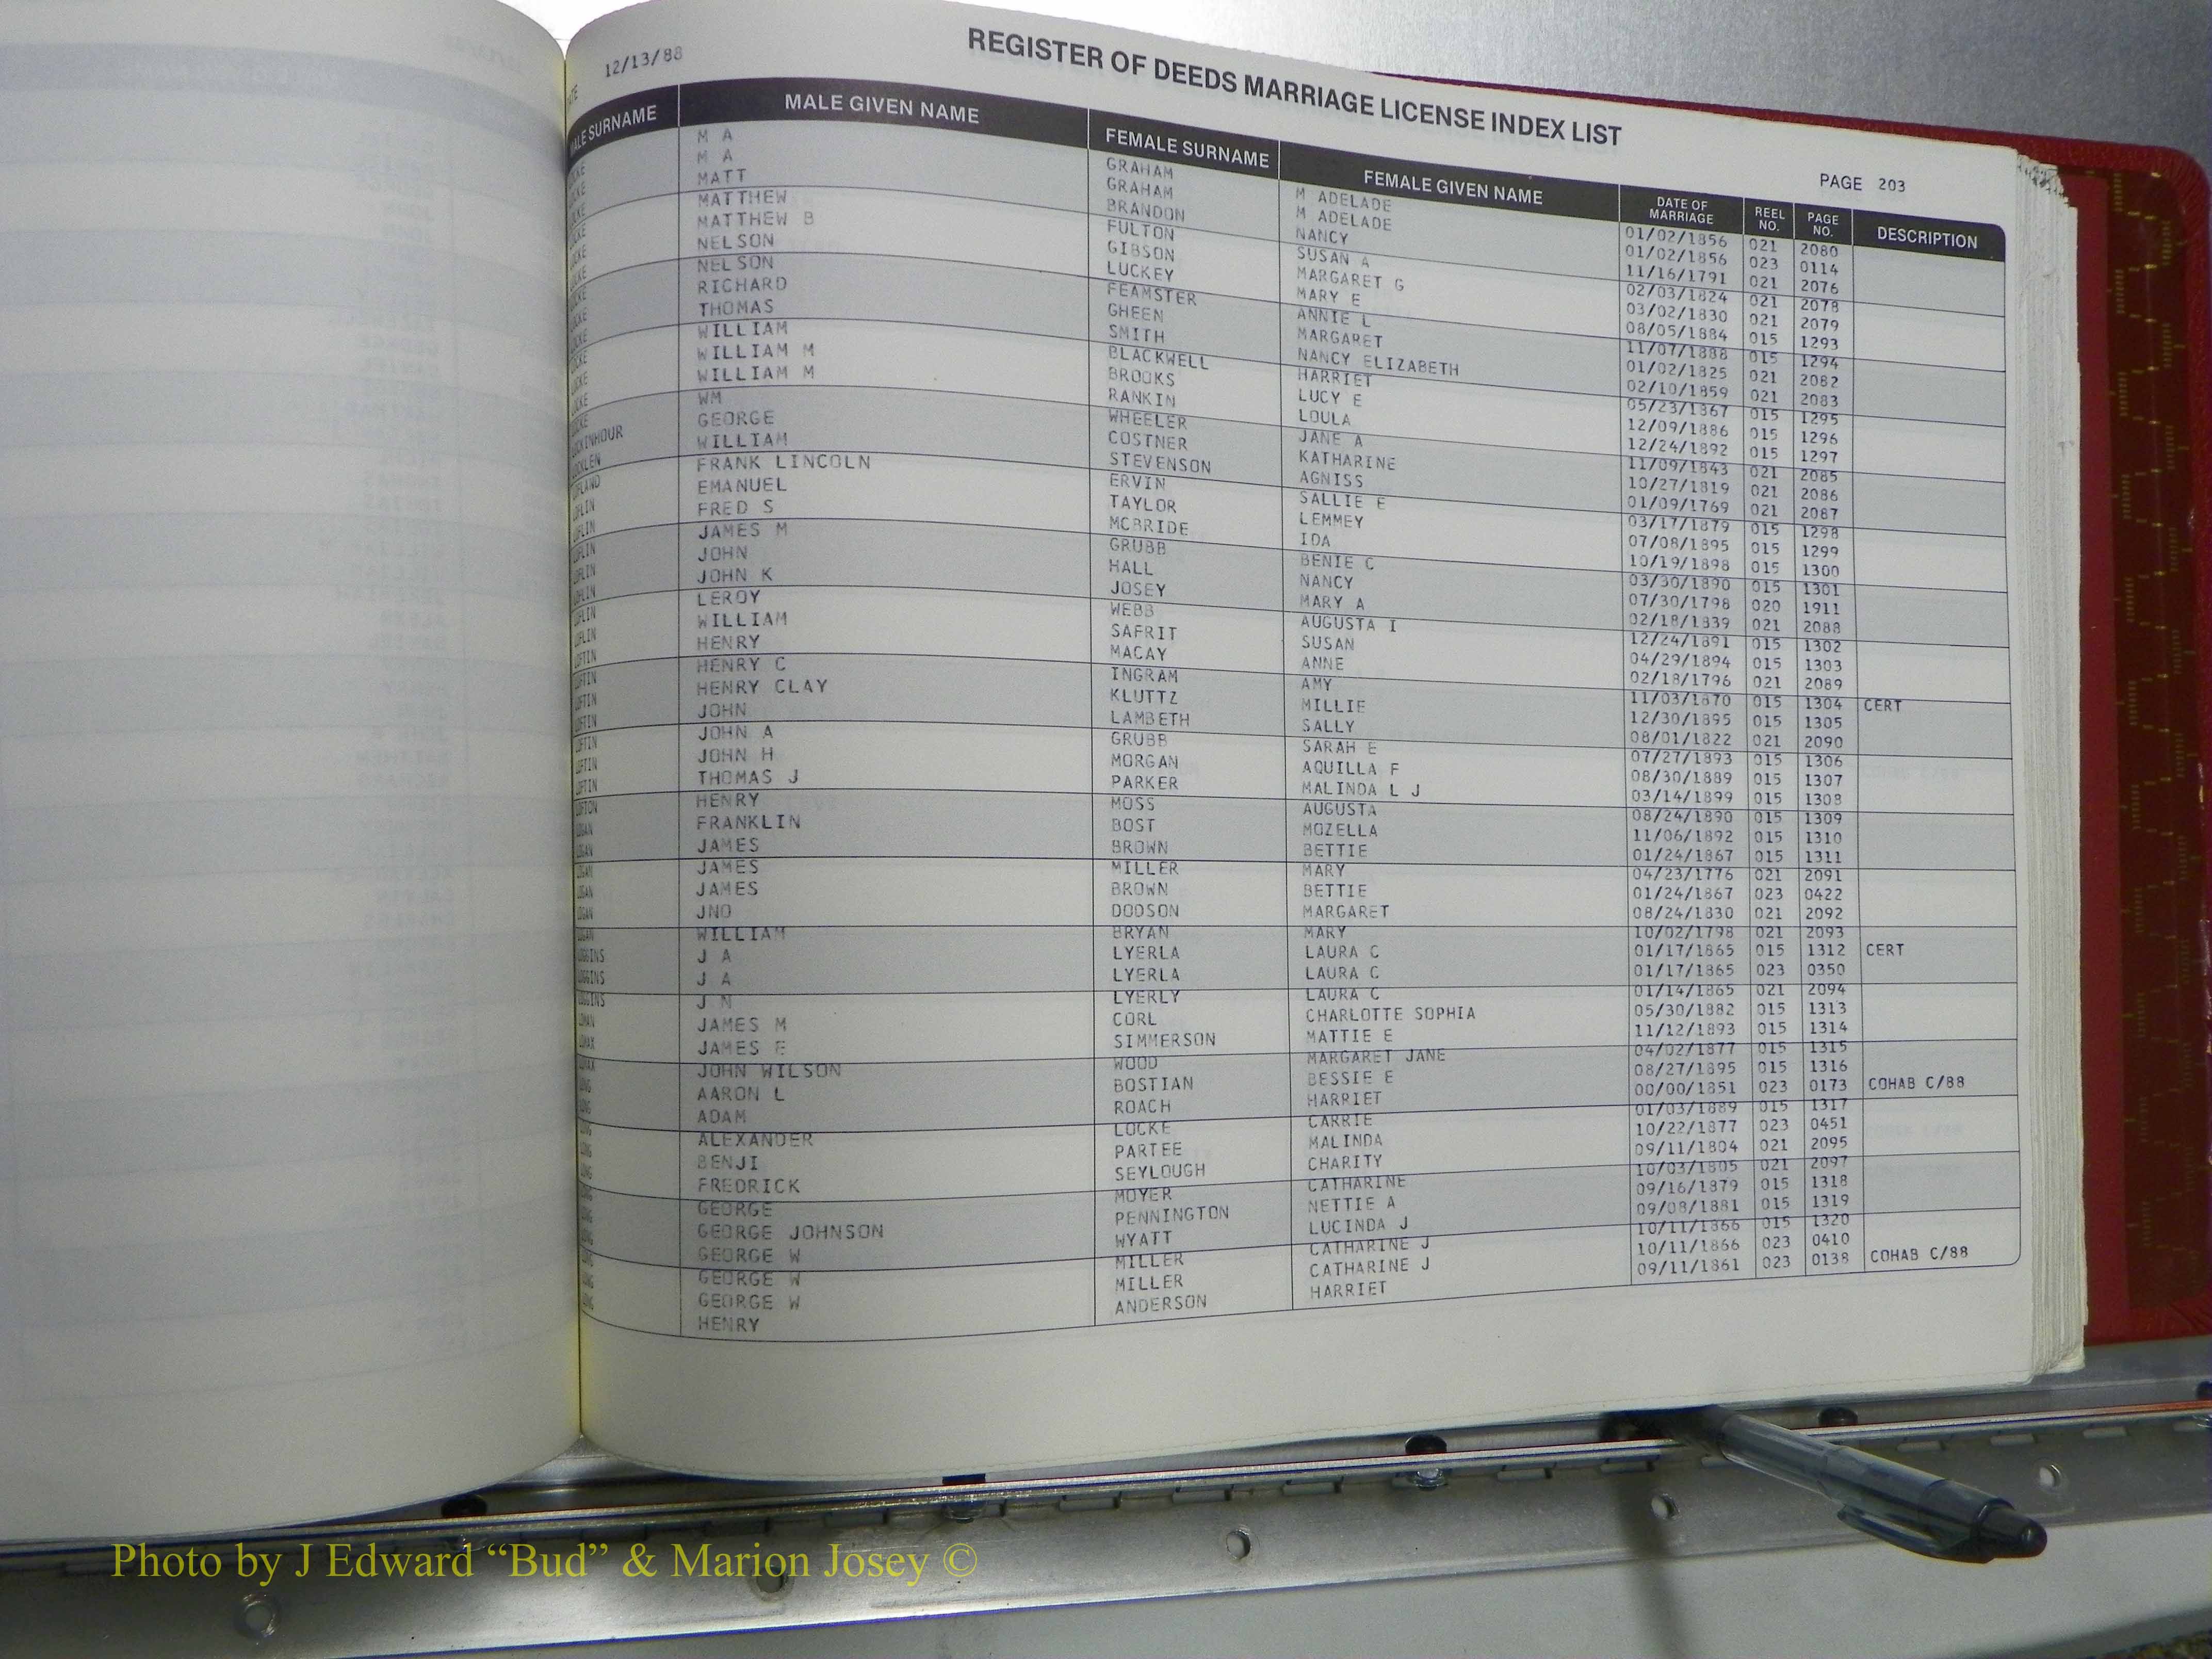 12/13/88
REGISTER OF DEEDS MARRIAGE LICENSE INDEX LIST
PAGE 203
MALE GIVEN NAME FEMALE SURNAME FEMALE GIVEN NAME DATE OF MARRIAGE REEL NO. PAGE NO. DESCRIPTION
M A GRAHAM M ADELADE 01/02/1856 021 2080
M A GRAHAM M ADELADE 01/02/1856 023 0114
MATT BRANDON NANCY 11/16/1791 021 2076
MATTHEW FULTON SUSAN A 02/03/1824 021 2078
MATTHEW B GIBSON MARGARET G 03/02/1830 021 2079
NELSON LUCKEY MARY E 08/05/1884 015 1293
NELSON FEAMSTER ANNIE L 11/07/1888 015 1294
RICHARD GHEEN MARGARET 01/02/1825 021 2082
THOMAS SMITH NANCY ELIZABETH 02/10/1859 021 2083
WILLIAM BLACKWELL HARRIET 05/23/1867 015 1295
WILLIAM M BROOKS LUCY E 12/09/1886 015 1296
WILLIAM M RANKIN LOULA 12/24/1892 015 1297
WM WHEELER JANE A 11/09/1843 021 2085
GEORGE COSTNER KATHARINE 10/27/1819 021 2086
WILLIAM STEVENSON AGNISS 01/09/1769 021 2087
FRANK LINCOLN ERVIN SALLIE E 03/17/1879 015 1298
EMANUEL TAYLOR LEMMEY 07/08/1895 015 1299
FRED S MCBRIDE IDA 10/19/1898 015 1300
JAMES M GRUBB BENIE C 03/30/1890 015 1301
JOHN HALL NANCY 07/30/1798 020 1911
JOHN K JOSEY MARY A 02/18/1839 021 2088
LEROY WEBB AUGUSTA I 12/24/1891 015 1302
WILLIAM SAFRIT SUSAN 04/29/1894 015 1303
HENRY MACAY ANNE 02/18/1796 021 2089
HENRY C INGRAM AMY 11/03/1870 015 1304 CERT
HENRY CLAY KLUTTZ MILLIE 12/30/1895 015 1305
JOHN LAMBETH SALLY 08/01/1822 021 2090
JOHN A GRUBB SARAH E 07/27/1893 015 1306
JOHN H MORGAN AQUILLA F 08/30/1889 015 1307
THOMAS J PARKER MALINDA L J 03/14/1899 015 1308
HENRY MOSS AUGUSTA 08/24/1890 015 1309
FRANKLIN BOST MOZELLA 11/06/1892 015 1310
JAMES BROWN BETTIE 01/24/1867 015 1311
JAMES MILLER MARY 04/23/1776 021 2091
JAMES BROWN BETTIE 01/24/1867 023 0422
JNO DODSON MARGARET 08/24/1830 021 2092
WILLIAM BRYAN MARY 10/02/1798 021 2093
J A LYERLA LAURA C 01/17/1865 015 1312 CERT
J A LYERLA LAURA C 01/17/1865 023 0350
J N LYERLY LAURA C 01/14/1865 021 2094
JAMES M CORL CHARLOTTE SOPHIA 05/30/1882 015 1313
JAMES E SIMMERSON MATTIE E 11/12/1893 015 1314
JOHN WILSON WOOD MARGARET JANE 04/02/1877 015 1315
AARON L BOSTIAN BESSIE E 08/27/1895 015 1316
ADAM ROACH HARRIET 00/00/1851 023 0173 COHAB C/88
ALEXANDER LOCKE CARRIE 01/03/1889 015 1317
BENJI PARTEE MALINDA 10/22/1877 023 0451
FREDRICK SEYLOUGH CHARITY 09/11/1804 021 2095
GEORGE MOYER CATHARINE 10/03/1805 021 2097
GEORGE JOHNSON PENNINGTON NETTIE A 09/16/1879 015 1318
GEORGE W WYATT LUCINDA J 09/08/1881 015 1319
GEORGE W MILLER CATHARINE J 10/11/1866 015 1320
GEORGE W MILLER CATHARINE J 10/11/1866 023 0410
HENRY ANDERSON HARRIET 09/11/1861 023 0138 COHAB C/88
Photo by J Edward “Bud” & Marion Josey ©